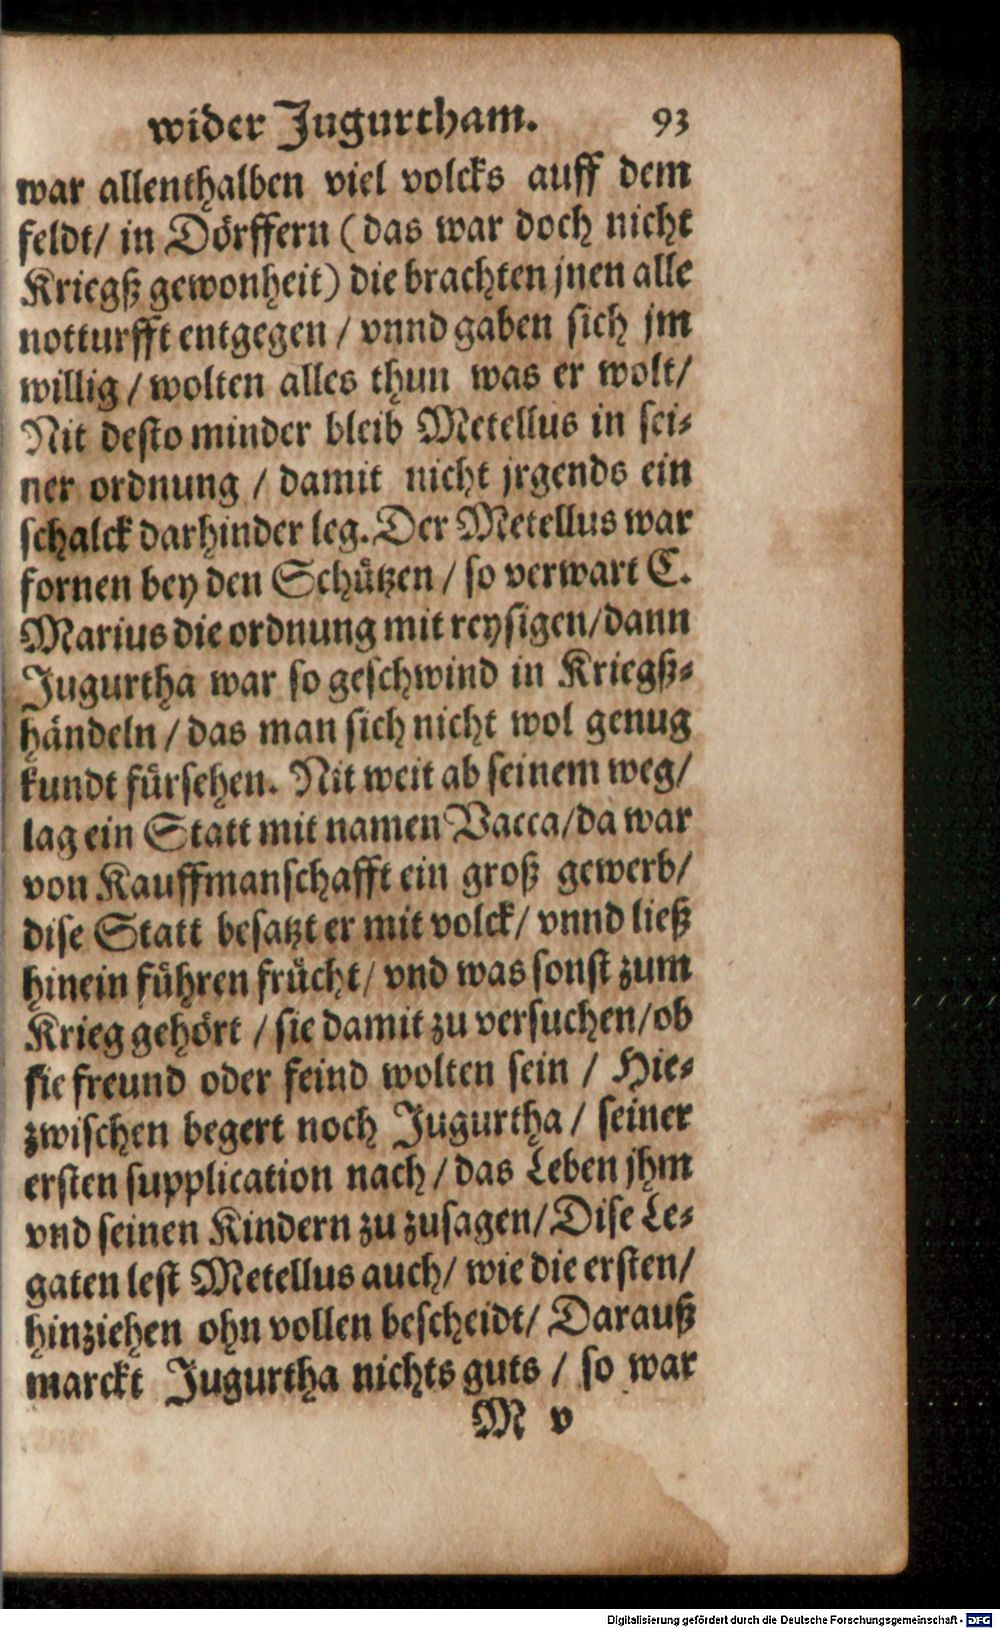 wider Jugurtham. 93
war allenthalben viel volcks auff dem
feldt/ in Dörffern (das war doch nicht
Kriegß gewonheit) die brachten jnen alle
notturfft entgegen / vnnd gaben sich jm
willig / wolten alles thun was er wolt/
Nit desto minder bleib Metellus in sei-
ner ordnung / damit nicht jrgends ein
schalck darhinder leg. Der Metellus war
fornen bey den Schützen / so verwart C.
Marius die ordnung mit reysigen/ dann
Jugurtha war so geschwind in Kriegß-
händeln / das man sich nicht wol genug
kundt fürsehen. Nit weit ab seinem weg/
lag ein Statt mit namen Vacca/ da war
von Kauffmanschafft ein groß gewerb/
dise Statt besatzt er mit volck/ vnnd ließ
hinein führen frücht/ vnd was sonst zum
Krieg gehört / sie damit zu versuchen/ ob
sie freund oder feind wolten sein / Hie-
zwischen begert noch Jugurtha / seiner
ersten supplication nach / das Leben jhm
vnd seinen Kindern zu zusagen/ Dise Le-
gaten lest Metellus auch/ wie die ersten/
hinziehen ohn vollen bescheidt/ Darauß
marckt Jugurtha nichts guts / so war
M v
Digitalisierung gefördert durch die Deutsche Forschungsgemeinschaft - DFG